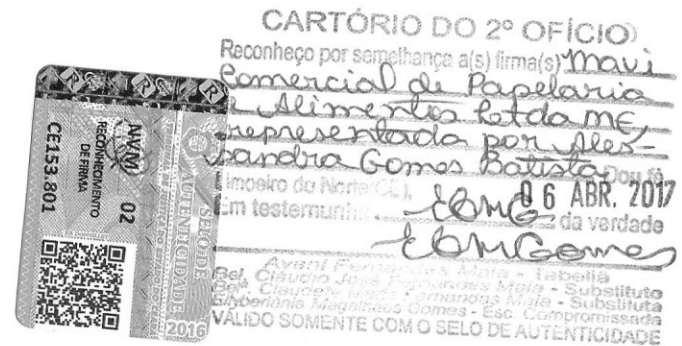 CARTÓRIO DO 2º OFÍCIO
Reconheço por semelhança a(s) firma(s) Mavi
Comercial de Papelaria
e Alimentos Letda ME
representada por Ales-
sandra Gomes Batista Dou fé
Limoeiro do Norte (CE), 06 ABR. 2017
Em testemunho da verdade
EBMGomes
Avani Fernandes Maia - Tabeliã
Bel. Cláudio José Fernandes Maia - Substituto
Fernandes Maia - Substituta
Magalhães Gomes - Esc. Compromissada
VÁLIDO SOMENTE COM O SELO DE AUTENTICIDADE
SELO DE
AUTENTICIDADE
2016
NVM 02
RECONHECIMENTO
DE FIRMA
CE153.801